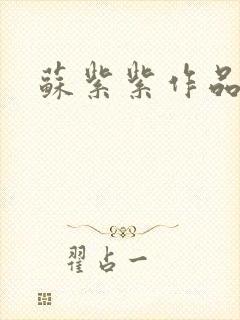 蘇紫紫作品
翟占一